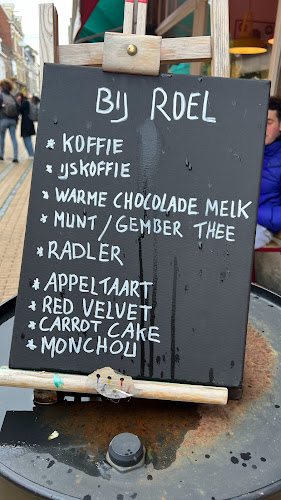 BIJ ROEL
* KOFFIE
* IJSKOFFIE
* WARME CHOCOLADE MELK
* MUNT / GEMBER THEE
* RADLER
* APPELTAART
* RED VELVET
* CARROT CAKE
* MONCHOU